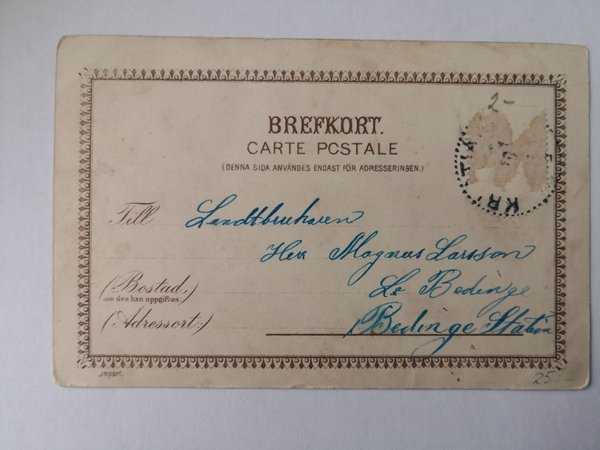 2-
BREFKORT.
CARTE POSTALE
(DENNA SIDA ANVÄNDES ENDAST FÖR ADRESSERINGEN.)
KRISTIA
Till Landtbrukaren
Herr Magnus Larsson
L. Bedinge
(Bostad,)
om den kan uppgifvas
(Adressort,) Bedinge Station
Import.
25